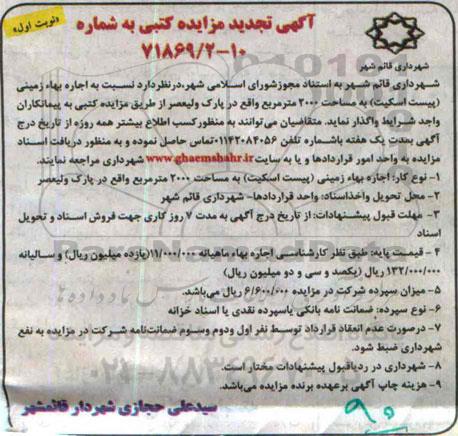 آگهی تجدید مزایده کتبی به شماره
۷۱۸۶۹/۲-۱۰
«نوبت اول»
شهرداری قائم شهر
شهرداری قائم شهر به استناد مجوزشورای اسلامی شهر،درنظردارد نسبت به اجاره بهاء زمینی
(پیست اسکیت) به مساحت ۲۰۰۰ مترمربع واقع در پارک ولیعصر از طریق مزایده کتبی به پیمانکاران
واجد شرایط واگذار نماید. متقاضیان می‌توانند به منظورکسب اطلاع بیشتر همه روزه از تاریخ درج
آگهی بمدت یک هفته باشماره تلفن ۰۱۱۴۲۰۸۴۰۵۶تماس حاصل نموده و به منظور دریافت اسناد
مزایده به واحد امور قراردادها و یا به سایت www.ghaemshahr.ir شهرداری مراجعه نمایند.
۱- نوع کار: اجاره بهاء زمینی (پیست اسکیت) به مساحت ۲۰۰۰ مترمربع واقع در پارک ولیعصر
۲- محل تحویل واخذاسناد: واحد قراردادها- شهرداری قائم شهر
۳- مهلت قبول پیشنهادات: از تاریخ درج آگهی به مدت ۷ روز کاری جهت فروش اسناد و تحویل
اسناد
۴- قیمت پایه: طبق نظر کارشناسی اجاره بهاء ماهیانه ۱۱/۰۰۰/۰۰۰(یازده میلیون ریال) و سالیانه
۱۳۲/۰۰۰/۰۰۰ ریال (یکصد و سی و دو میلیون ریال)
۵- میزان سپرده شرکت در مزایده ۶/۶۰۰/۰۰۰ ریال می‌باشد.
۶- نوع سپرده: ضمانت نامه بانکی یاسپرده نقدی یا اسناد خزانه
۷- درصورت عدم انعقاد قرارداد توسط نفر اول ودوم وسوم ضمانت‌نامه شرکت در مزایده به نفع
شهرداری ضبط شود.
۸- شهرداری در ردیاقبول پیشنهادات مختار است.
۹- هزینه چاپ آگهی برعهده برنده مزایده می‌باشد.
سیدعلی حجازی شهردار قائمشهر